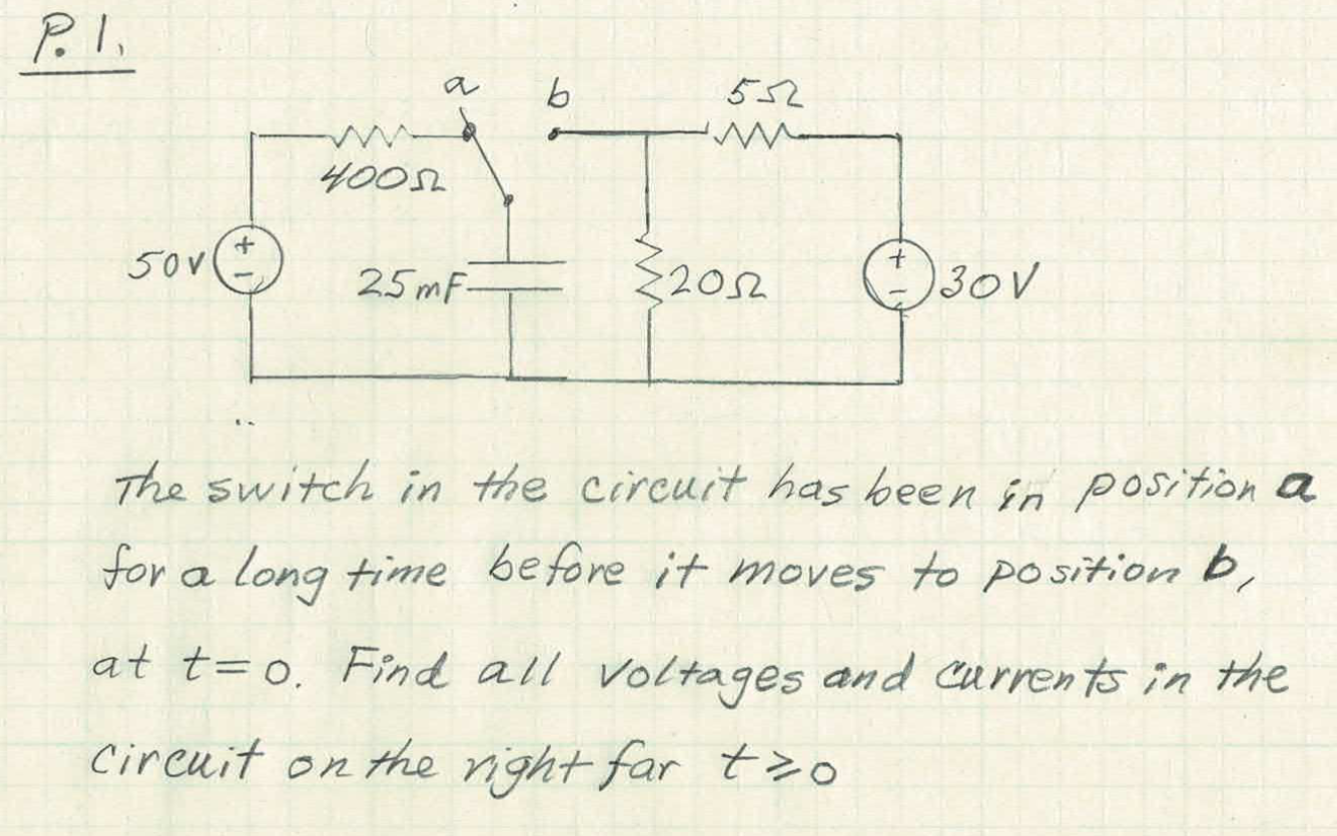 P.1.
a b 5Ω
400Ω
50V + - 25mF 20Ω + - 30V
The switch in the circuit has been in position a
for a long time before it moves to position b,
at t=0. Find all voltages and currents in the
circuit on the right far t≥0